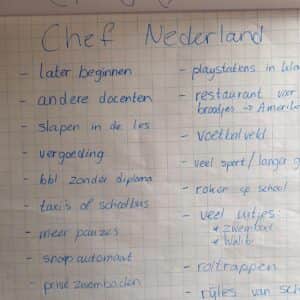 Chef Nederland
- later beginnen
- andere docenten
- slapen in de les
- vergoeding
- bbl zonder diploma
- taxi's of schoolbus
- meer pauzes
- snap automaat
- privé zwembaden
- playstations in
- restaurant voor
broodjes →
- voetbalveld
- veel sport / langer
- roken op school
- veel uitjes:
* zwembad
* Walibi
- roltrappen
- regels van